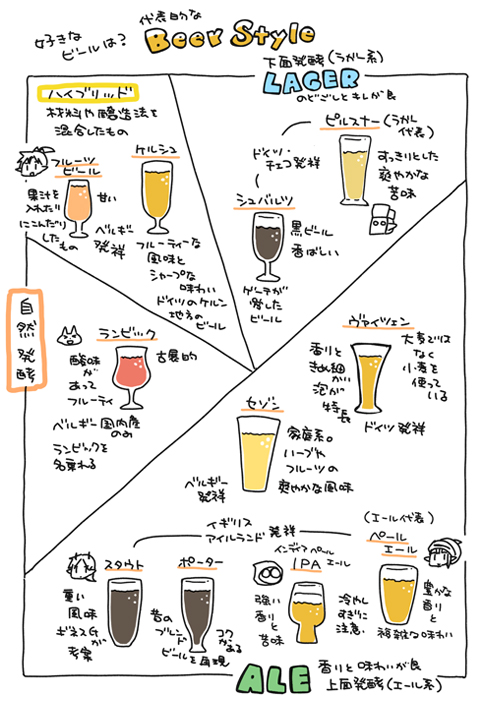 好きな
ビールは?
代表的な
Beer Style
下面発酵(ラガー系)
LAGER
のどごしとキレが良
ハイブリッド
材料や醸造法を
混合したもの
フルーツ
ビール
果汁を
入れたり
にこんだりした
もの
甘い
ベルギー
発祥
ケルシュ
フルーティーな
風味と
シャープな
味わい
ドイツのケルン
地方の
ビール
ピルスナー(ラガー
代表)
ドイツ・
チェコ発祥
すっきりとした
爽やかな
苦味
シュバルツ
黒ビール
香ばしい
ゲーテが
愛した
ビール
自然発酵
ランビック
酸味
が
あって
フルーティ
古典的
ベルギー国内産
のみ
ランビックを
名乗れる
ヴァイツェン
香りと
きめ細
かい
泡が
特長
大麦では
なく
小麦を
使って
いる
ドイツ発祥
セゾン
家庭系。
ハーブや
フルーツの
爽やかな風味
ベルギー
発祥
イギリス
アイルランド発祥
スタウト
重い
風味
ギネスが
考案
ポーター
昔の
ブレンド
ビールを再現
コク
がある
インディアペール
エール
IPA
強い
香り
と
苦味
冷やし
すぎに
注意
(エール代表)
ペール
エール
豊かな
香り
と
複雑な味わい
ALE
香りと味わいが良
上面発酵(エール系)